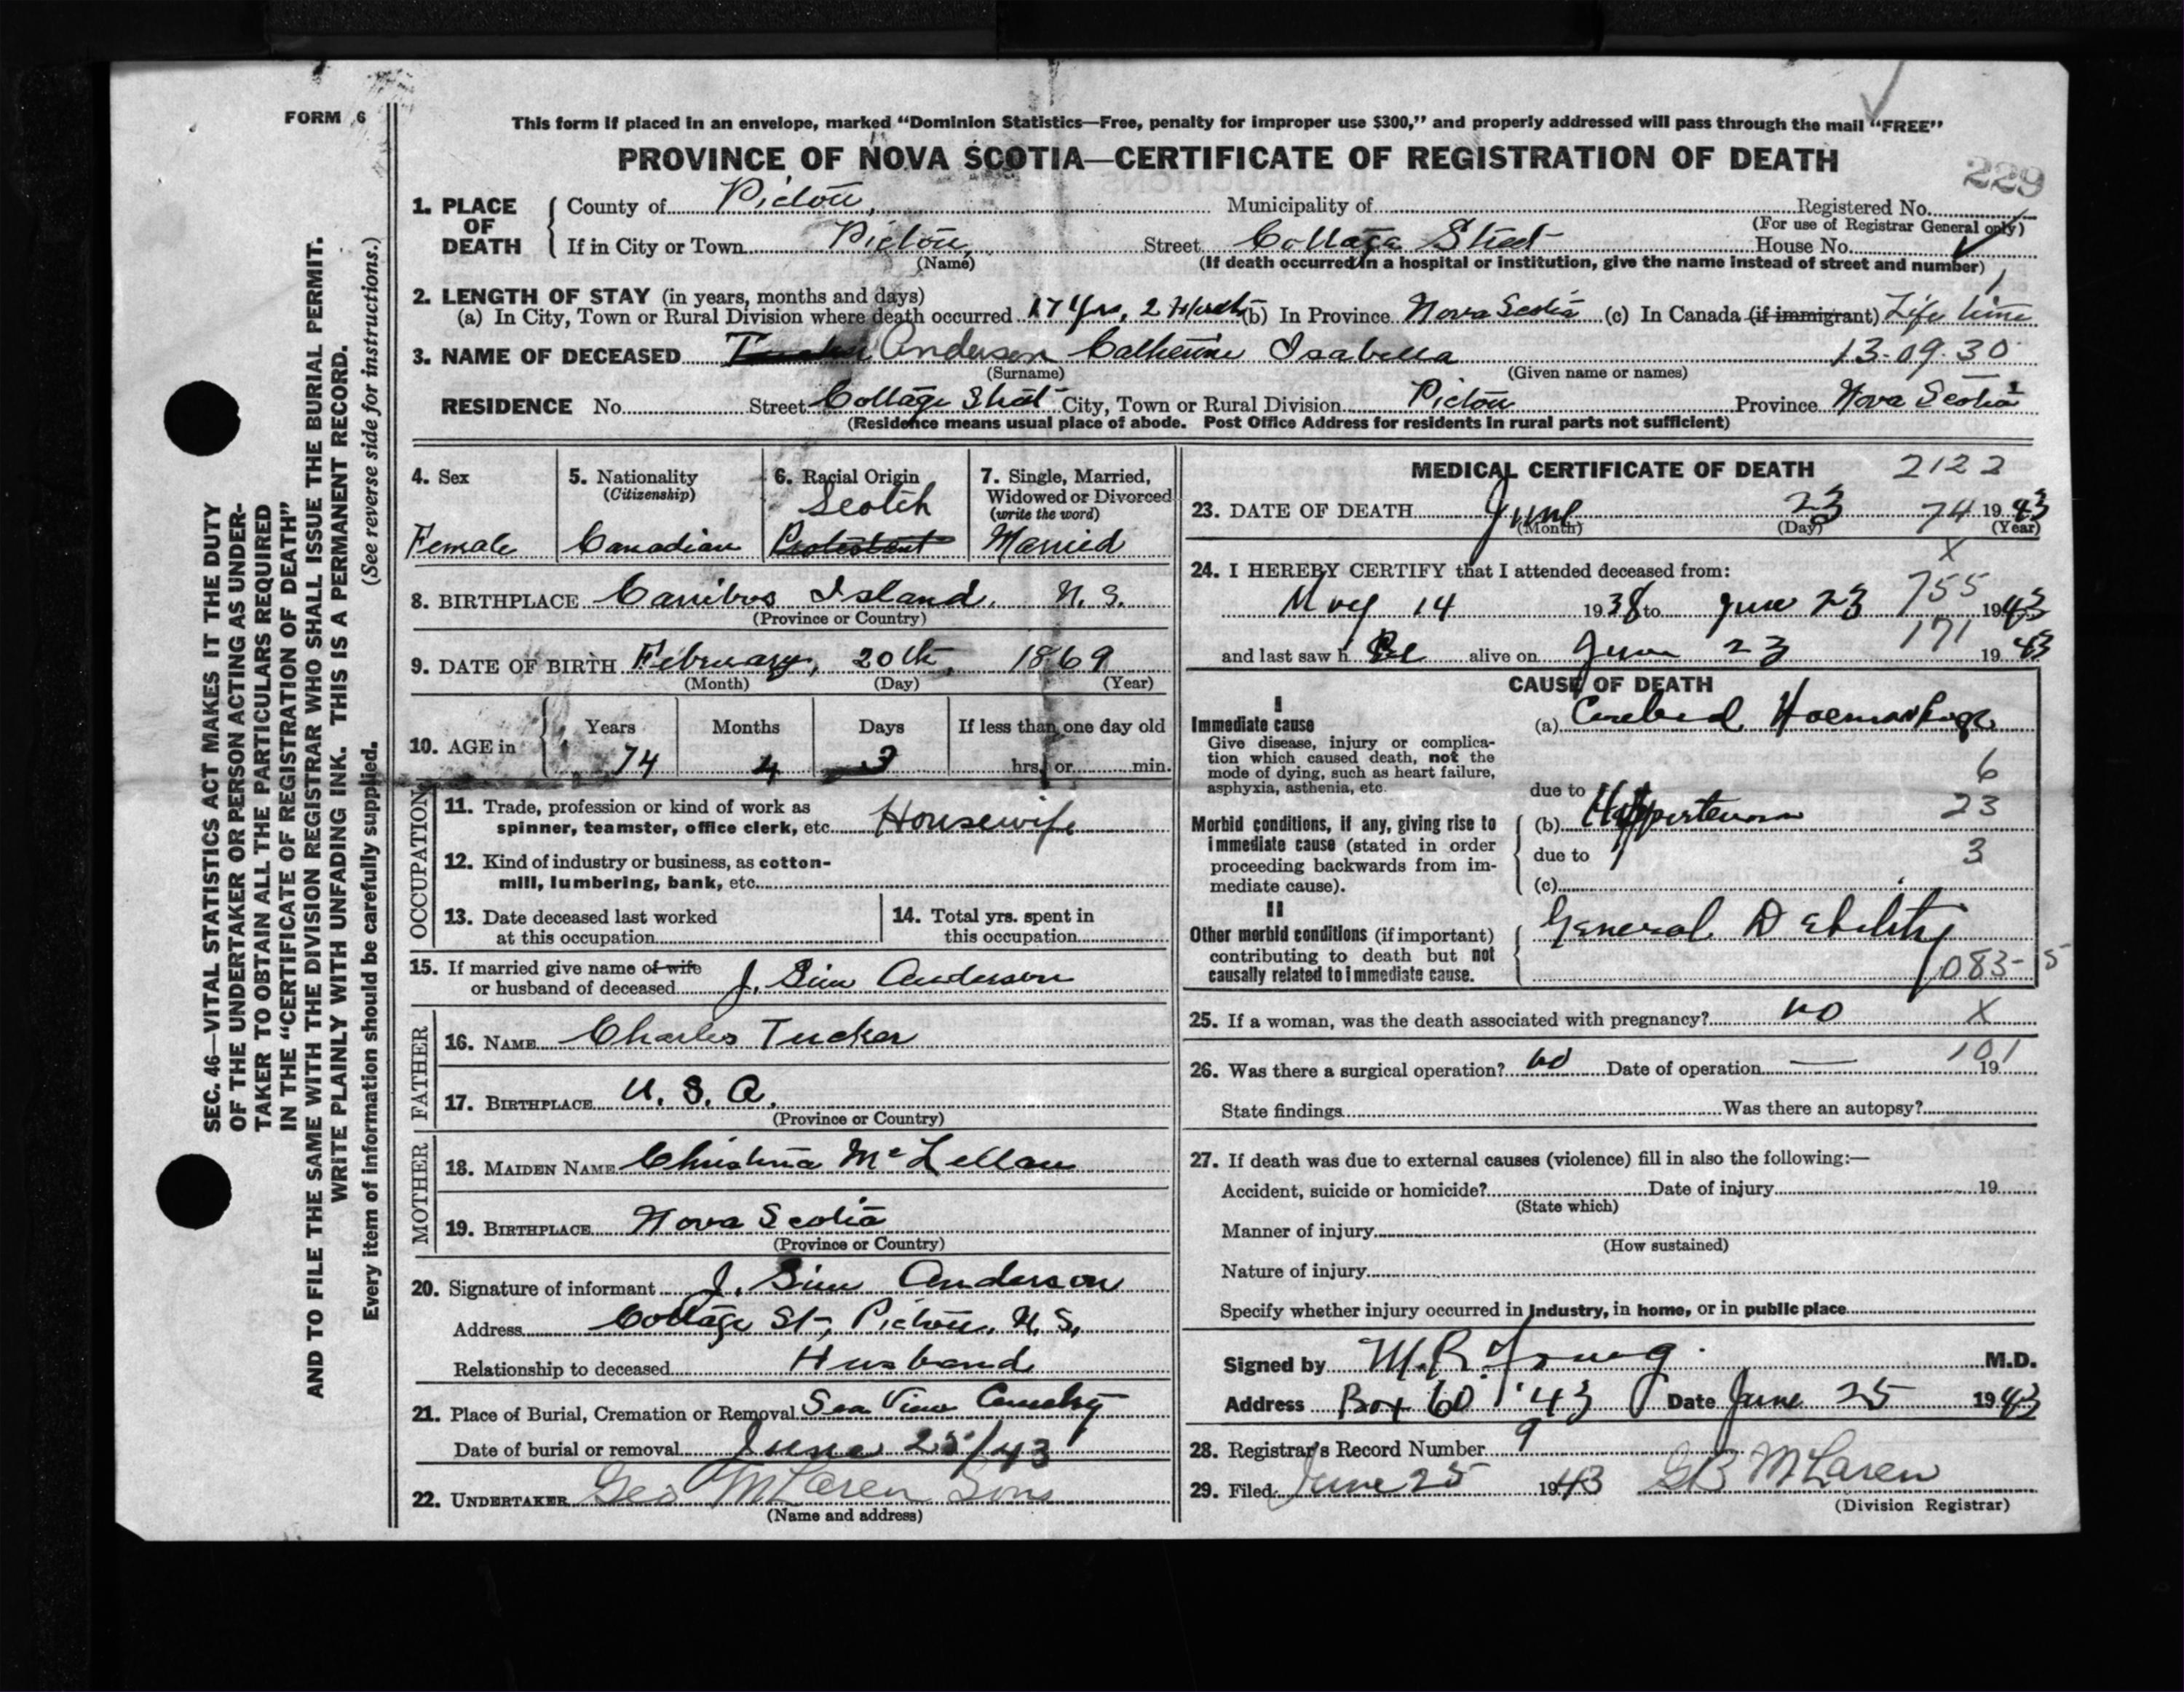 FORM 6
This form if placed in an envelope, marked "Dominion Statistics—Free, penalty for improper use $300," and properly addressed will pass through the mail "FREE"
PROVINCE OF NOVA SCOTIA—CERTIFICATE OF REGISTRATION OF DEATH
229
1. PLACE OF DEATH County of Pictou, Municipality of Registered No.
(For use of Registrar General only)
If in City or Town Pictou, Street Cottage Street House No.
(Name)
(If death occurred in a hospital or institution, give the name instead of street and number)
2. LENGTH OF STAY (in years, months and days)
(a) In City, Town or Rural Division where death occurred 17 Yrs, 2 (b) In Province Nova Scotia (c) In Canada (if immigrant) Life time
3. NAME OF DECEASED Anderson Catherine Isabella 13-09-30
(Surname) (Given name or names)
RESIDENCE No. Street Cottage Street City, Town or Rural Division Pictou Province Nova Scotia
(Residence means usual place of abode. Post Office Address for residents in rural parts not sufficient)
SEC. 46—VITAL STATISTICS ACT MAKES IT THE DUTY
OF THE UNDERTAKER OR PERSON ACTING AS UNDER-
TAKER TO OBTAIN ALL THE PARTICULARS REQUIRED
IN THE "CERTIFICATE OF REGISTRATION OF DEATH"
AND TO FILE THE SAME WITH THE DIVISION REGISTRAR WHO SHALL ISSUE THE BURIAL PERMIT.
WRITE PLAINLY WITH UNFADING INK. THIS IS A PERMANENT RECORD.
Every item of information should be carefully supplied. (See reverse side for instructions.)
4. Sex
Female
5. Nationality
(Citizenship)
Canadian
6. Racial Origin
Scotch
Protestant
7. Single, Married,
Widowed or Divorced
(write the word)
Married
8. BIRTHPLACE Carribos Island, N.S.
(Province or Country)
9. DATE OF BIRTH February, 20th, 1869
(Month) (Day) (Year)
10. AGE in Years Months Days If less than one day old
74 4 3 hrs. or min.
OCCUPATION
11. Trade, profession or kind of work as
spinner, teamster, office clerk, etc. Housewife
12. Kind of industry or business, as cotton-
mill, lumbering, bank, etc.
13. Date deceased last worked
at this occupation
14. Total yrs. spent in
this occupation
15. If married give name of wife
or husband of deceased J. Sim Anderson
FATHER
16. NAME Charles Tucker
17. BIRTHPLACE U.S.A.
(Province or Country)
MOTHER
18. MAIDEN NAME Christina McLellan
19. BIRTHPLACE Nova Scotia
(Province or Country)
20. Signature of informant J. Sim Anderson
Address Cottage St., Pictou, N.S.
Relationship to deceased Husband
21. Place of Burial, Cremation or Removal Sea View Cemetery
Date of burial or removal June 25/43
22. UNDERTAKER Geo McLaren Sons
(Name and address)
MEDICAL CERTIFICATE OF DEATH 2122
23. DATE OF DEATH June 23 74 1943
(Month) (Day) (Year)
X
24. I HEREBY CERTIFY that I attended deceased from:
May 14 1938 to June 23 755 1943
and last saw her alive on June 23 171 1943
CAUSE OF DEATH
I
Immediate cause
Give disease, injury or complica-
tion which caused death, not the
mode of dying, such as heart failure,
asphyxia, asthenia, etc.
(a) Cerebral Hoemorrhage
6
due to
Morbid conditions, if any, giving rise to
immediate cause (stated in order
proceeding backwards from im-
mediate cause).
(b) Hypertension 23
due to 3
(c)
II
Other morbid conditions (if important)
contributing to death but not
causally related to immediate cause.
General Debility
083-5
25. If a woman, was the death associated with pregnancy? no X
26. Was there a surgical operation? no Date of operation — 101 19
State findings Was there an autopsy?
27. If death was due to external causes (violence) fill in also the following:—
Accident, suicide or homicide? Date of injury 19
(State which)
Manner of injury
(How sustained)
Nature of injury
Specify whether injury occurred in industry, in home, or in public place
Signed by M.R. Young M.D.
Address Box 60 '43 Date June 25 1943
28. Registrar's Record Number 9
29. Filed June 25 1943 GB McLaren
(Division Registrar)